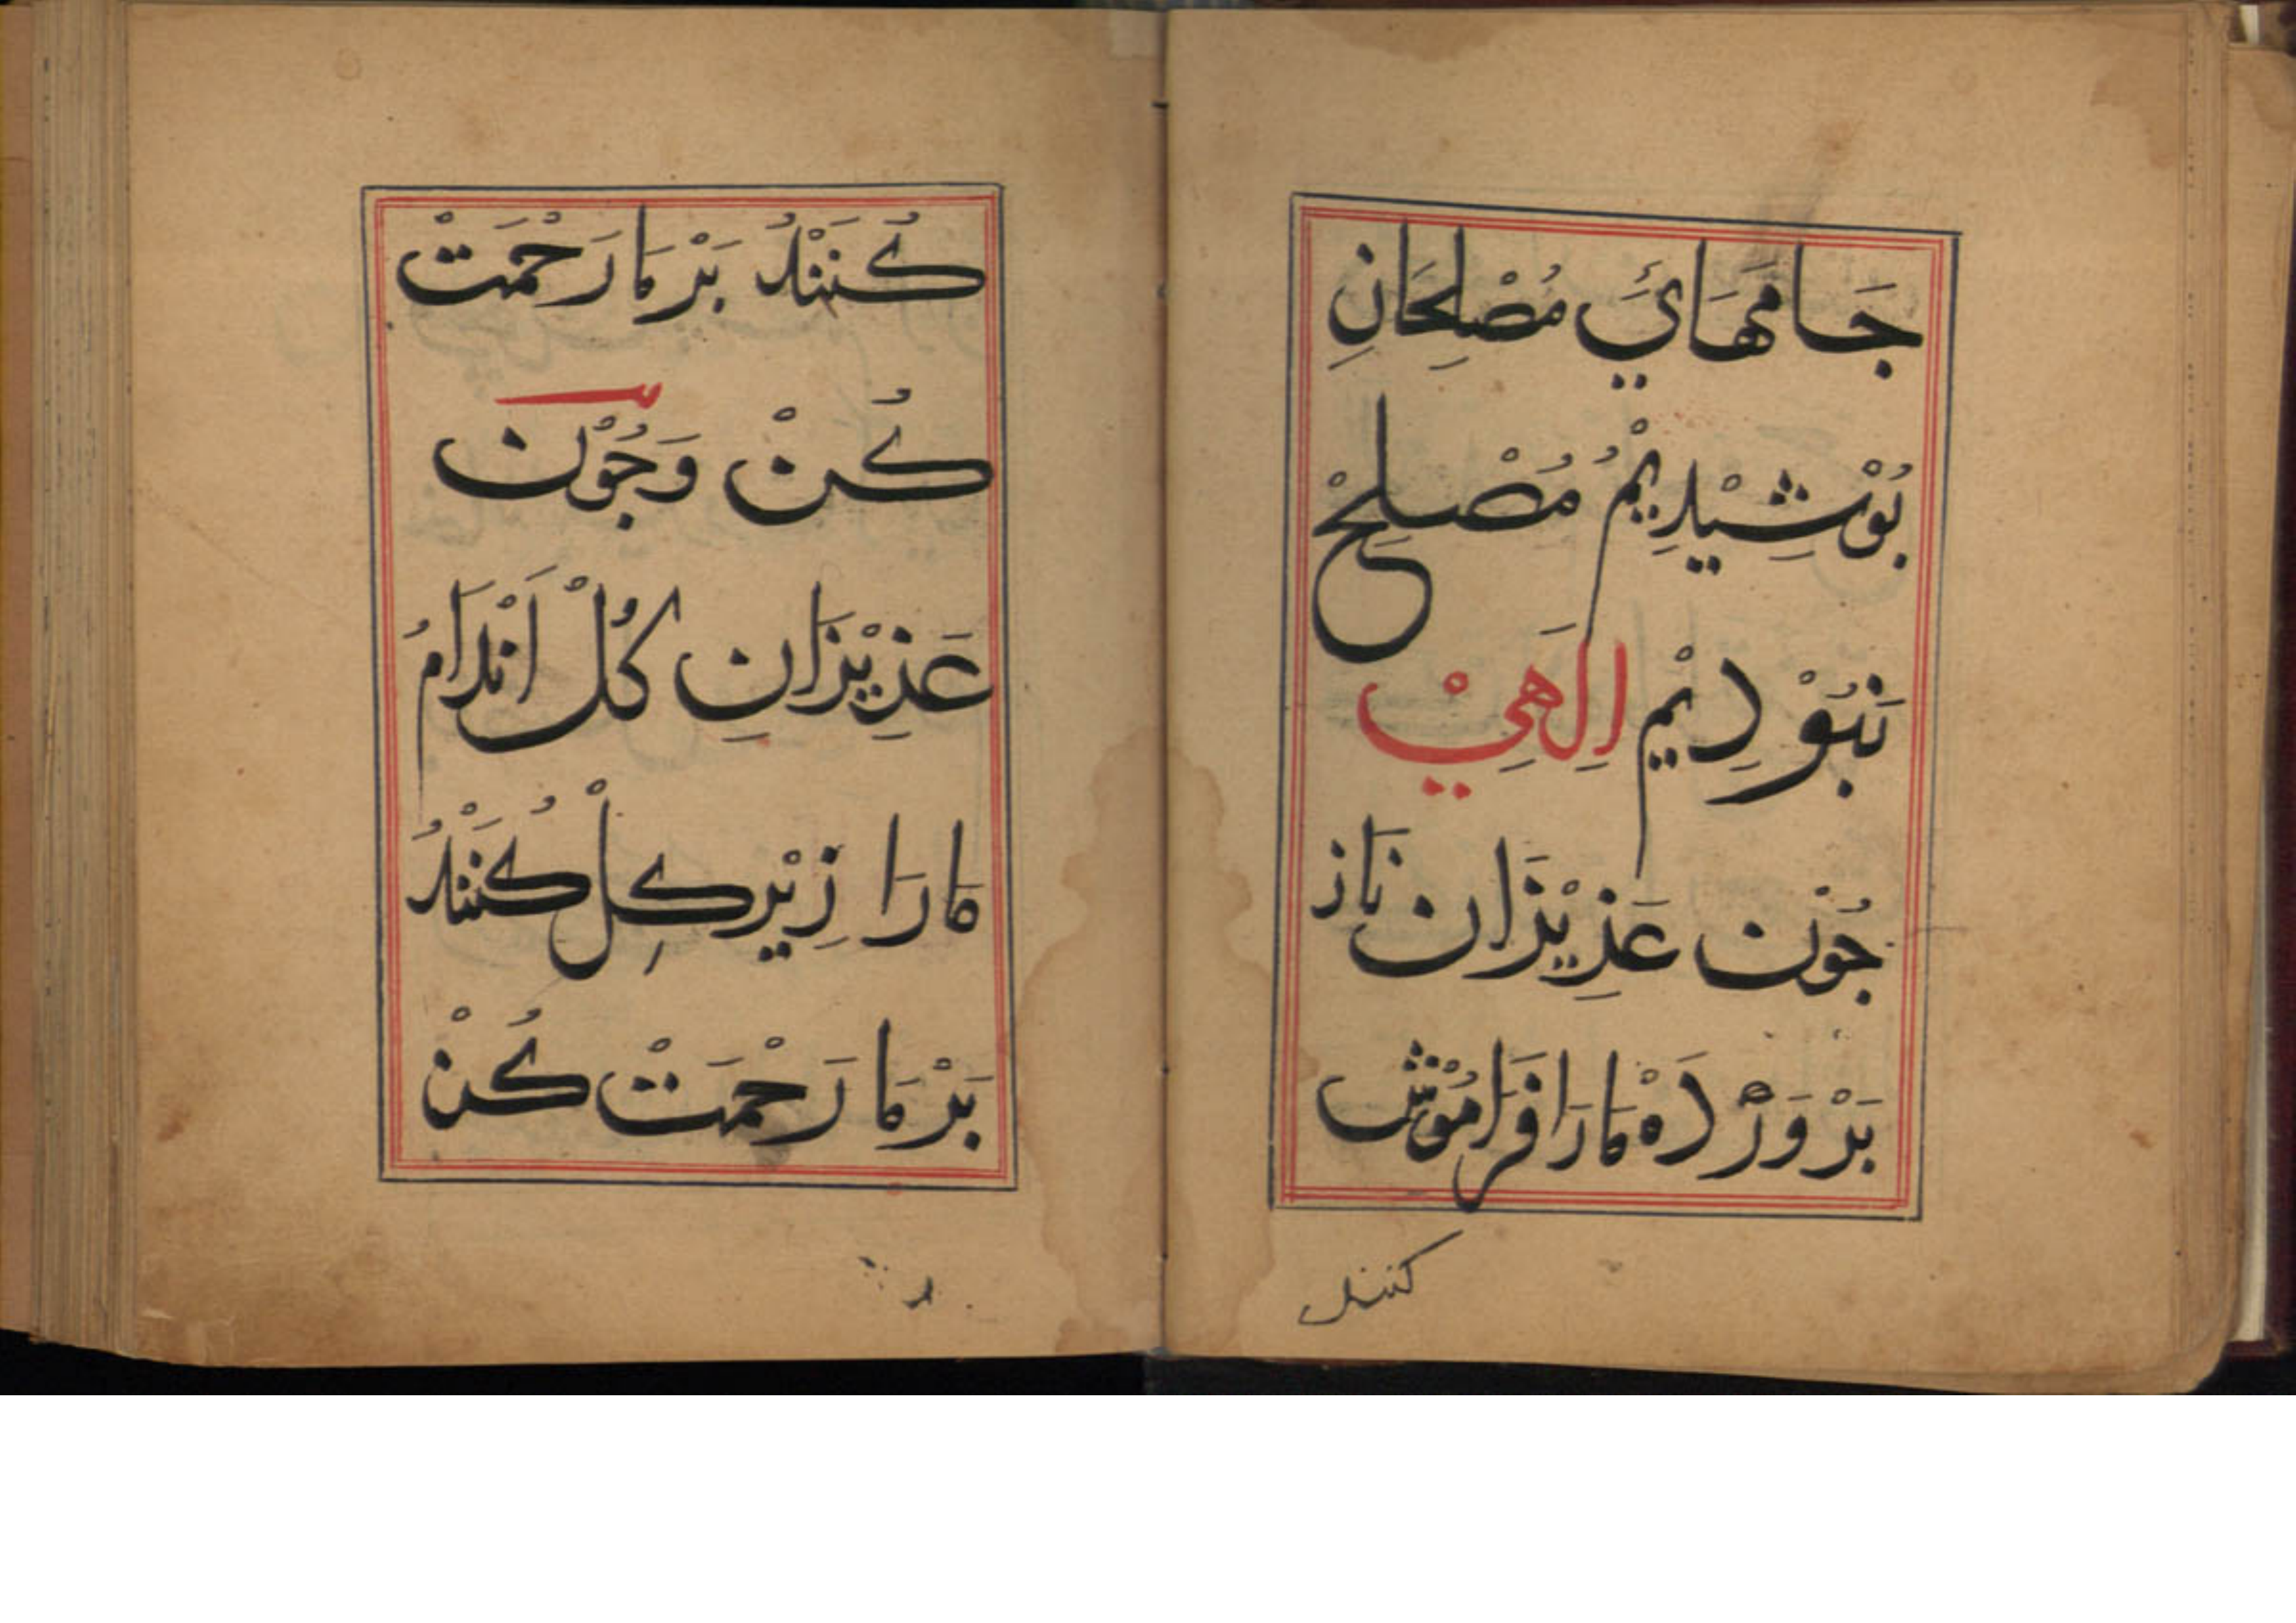 جَامَهَائَي مُصْلِحَانِ
بُوْشِيْدِيْمُ مُصْلِحْ
نَبُوْدِيْم اِلَهِيْ
جُوْن عَزِيْزَان نَاز
بَرْوَرْدَهْ مَارَا فَرَامُوْش
كنند
كُنَنْدُ بَرْمَا رَحْمَتْ
كُنْ وَجُوْن
عَزِيْزَانِ كُلْ اَنْدَامُ
مَارَا زِيْرِ كِلْ كُنَنْدُ
بَرْمَا رَحْمَتْ كُنْ